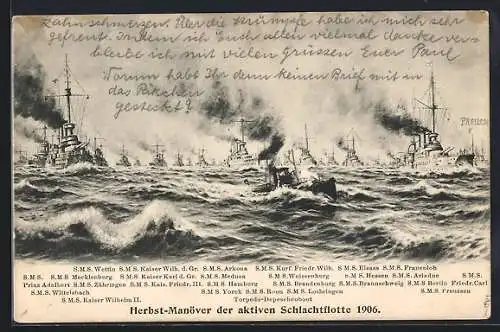 Zahnschmerzen. Über die Strümpfe habe ich mich sehr
gefreut. Indem ich Euch allen vielmal danke ver-
bleibe ich mit vielen Grüssen Euer Paul
Warum habt Ihr denn keinen Brief mit in
das Päckchen
gesteckt?
S.M.S. Wettin S.M.S. Kaiser Wilh. d. Gr. S.M.S. Arkona S.M.S. Kurf. Friedr. Wilh. S.M.S. Elsass S.M.S. Frauenlob
S.M.S. S.M.S. Mecklenburg S.M.S. Kaiser Karl d. Gr. S.M.S. Medusa S.M.S. Weissenburg S.M.S. Hessen S.M.S. Ariadne S.M.S.
Prinz Adalbert S.M.S. Zähringen S.M.S. Kais. Friedr. III. S.M.S. Hamburg S.M.S. Brandenburg S.M.S. Braunschweig S.M.S. Berlin Friedr. Carl
S.M.S. Wittelsbach S.M.S. Yorck S.M.S. Roon S.M.S. Lothringen S.M.S. Preussen
S.M.S. Kaiser Wilhelm II. Torpedo-Depeschenboot
Herbst-Manöver der aktiven Schlachtflotte 1906.